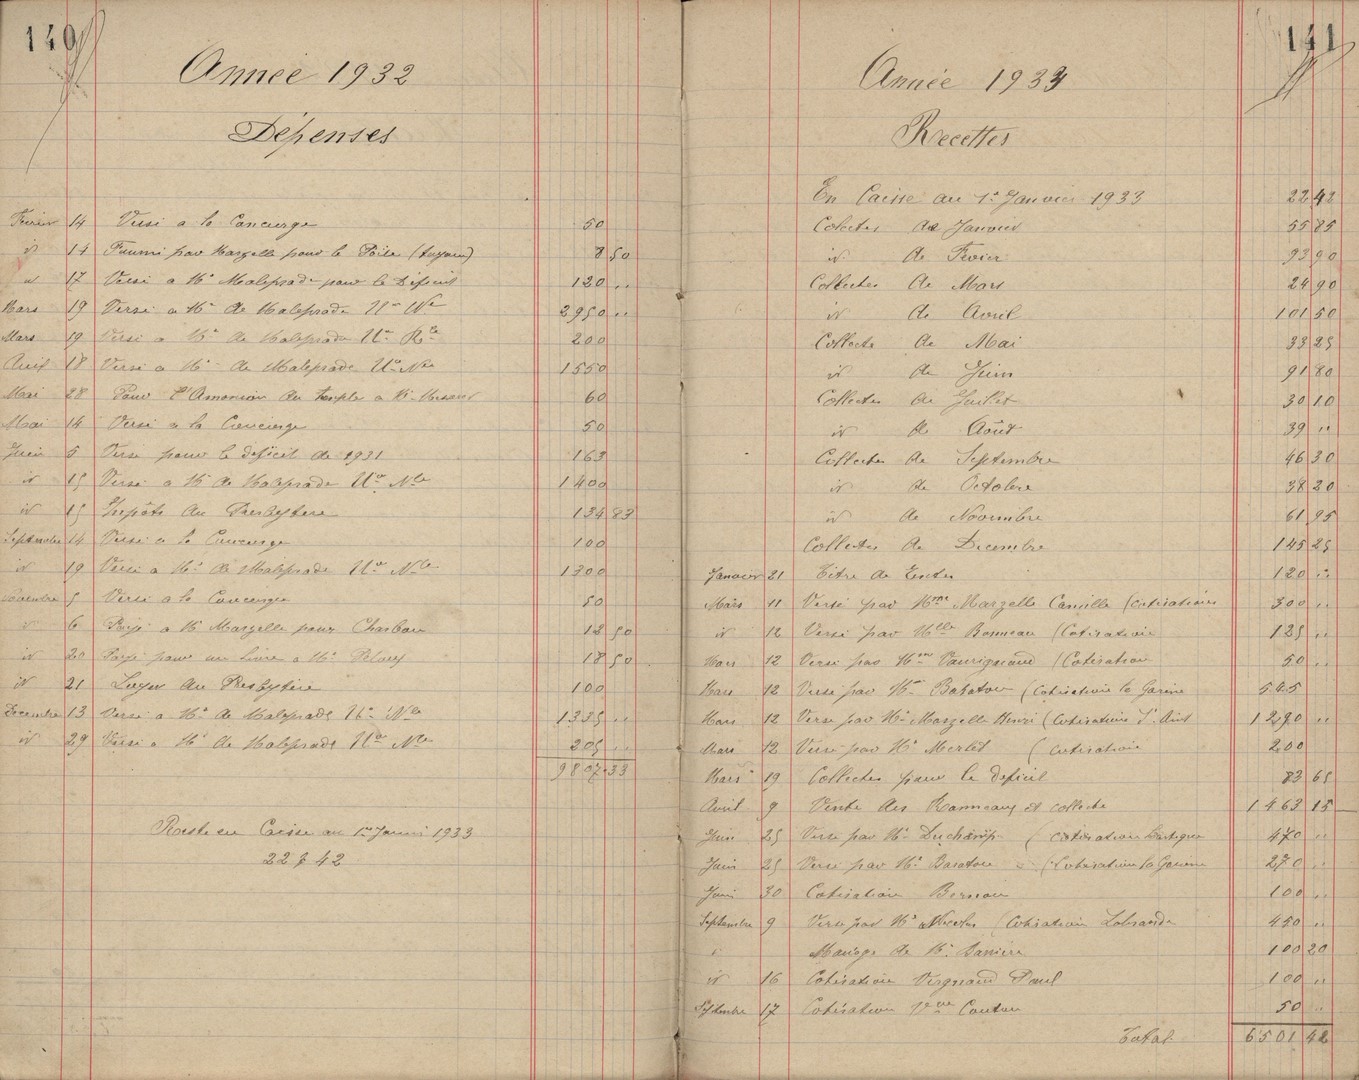 140
Année 1932
Dépenses
Fevrier 14 Versé a la Concierge 50
id 14 Fourni par Marzelle pour le Poile (tuyau) 8 50
id 17 Versé a Mr Maleprade pour le Déficit 120 "
Mars 19 Versé a Mr de Maleprade Un Nle 2950 "
Mars 19 Versé a Mr de Maleprade Un Rle 200
Avril 18 Versé a Mr de Maleprade Un Nle 1550
Mai 28 Pour l' du temple a 60
Mai 14 Versé a la Concierge 50
Juin 5 Versé pour le deficit de 1931 163
id 15 Versé a Mr de Maleprade Un Nle 1400
id 15 Impôts du Presbytere 134 83
Septembre 14 Versé a la Concierge 100
id 19 Versé a Mr de Maleprade Un Nle 1300
Novembre 5 Versé a la Concierge 50
id 6 Payé a Mr Marzelle pour Charbon 12 50
id 20 Payé pour un livre a Mr 18 50
id 21 Loyer du Presbytère 100
Decembre 13 Versé a Mr de Maleprade Un Nle 1335 "
id 29 Versé a Mr de Maleprade Un Nle 205 "
9807.33
Reste en Caisse au 1er Janvier 1933
22 f 42
141
Année 1933
Recettes
En Caisse au 1er Janvier 1933 22 42
Collectes de Janvier 55 85
id de Fevrier 93 90
Collectes de Mars 24 90
id de Avril 101 50
Collecte de Mai 33 25
id de Juin 91 80
Collectes de Juillet 30 10
id de Août 39 "
Collectes de Septembre 46 30
id de Octobre 38 20
id de Novembre 61 95
Collectes de Decembre 145 25
Janvier 21 Titre de 120 "
Mars 11 Versé par Mme Marzelle Camille (cotisation 300 "
id 12 Versé par Melle Bonneau (Cotisation 125 "
Mars 12 Versé par Mme (Cotisation 50 "
Mars 12 Versé par Mr Baraton (cotisation la Garenne 545
Mars 12 Versé par Mr Marzelle Henri (cotisation 1290 "
Mars 12 Versé par Mr Merlet (cotisation 200
Mars 19 Collectes pour le deficit 83 65
Avril 9 Vente des Rameaux et collecte 1463 15
Juin 25 Versé par Mr Duchamp (cotisation 470 "
Juin 25 Versé par Mr Baraton (Cotisation la Garenne 270 "
Juin 30 Cotisation 100 "
Septembre 9 Versé par Mr Nicolas (Cotisation 450 "
" Mariage de Mr 100 20
id 16 Cotisation Vergnaud Paul 100 "
Septembre 17 Cotisation Vve Couton 50 "
Total 6501 42